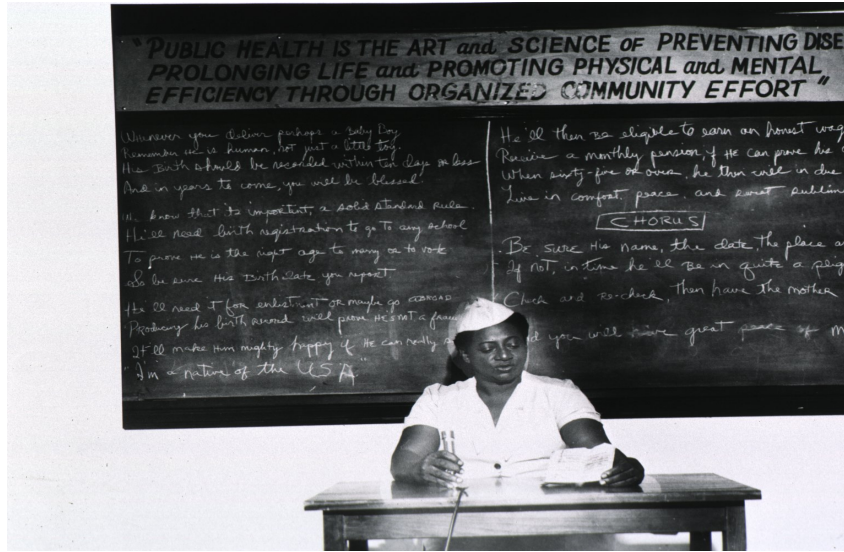 "PUBLIC HEALTH IS THE ART and SCIENCE OF PREVENTING DISE
PROLONGING LIFE and PROMOTING PHYSICAL and MENTAL
EFFICIENCY THROUGH ORGANIZED COMMUNITY EFFORT"
Whenever you deliver perhaps a Baby Boy
Remember He is human, not just a little toy.
His Birth should be recorded within ten days or less
And in years to come, you will be blessed.
We know that its important, a solid standard rule.
He'll need birth registration to go to any school
To prove He is the right age to marry or to vote
So be sure His Birth date you report
He ll need it for enlistment or maybe go abroad
Producing his birth record will prove He's not a frau
It'll make Him mighty happy if He can really s
"I'm a native of the USA"
He'll then Be eligible to earn an honest wag
Receive a monthly pension, if He can prove his
When sixty-five or over, he then will in due
Live in comfort, peace, and sweet sublim
CHORUS
Be sure His name, the date, the place a
If not, in time he'll Be in quite a plig
Check and re-check, then have the mother
d you will have great peace of m